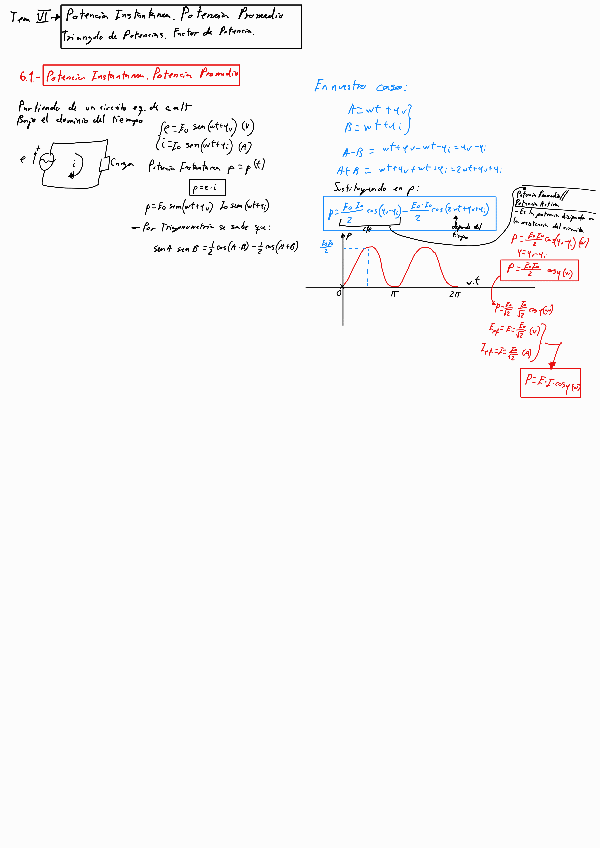 Tema VI → Potencia Instantanea. Potencia Promedio
Triangulo de Potencias. Factor de Potencia.
6.1- Potencia Instantanea. Potencia Promedio
Partiendo de un circuito eq. de c.alt
Bajo el dominio del tiempo
e = Eo sen(wt+φv) (V)
i = Io sen(wt+φi) (A)
e
i
Carga
Potencia Instantanea p = p(t)
p=e·i
p=Eo sen(wt+φv) Io sen(wt+φi)
- Por Trigonometria se sabe que:
senA senB = 1/2 cos(A-B) - 1/2 cos(A+B)
En nuestro caso:
A = wt + φv
B = wt + φi
A-B = wt+φv-wt-φi = φv-φi
A+B = wt+φv+wt+φi = 2wt+φv+φi
Sustituyendo en p:
p = Eo·Io/2 cos(φv-φi) - Eo·Io/2 cos(2wt+φv+φi)
cte
depende del
tiempo
EoIo/2
p
0
π
2π
w.t
Potencia Promedio//
Potencia Activa
- Es la potencia disipada en
la resistencia del circuito
P = EoIo/2 cos(φv-φi) (w)
φ=φv-φi
P = EoIo/2 cosφ (w)
P = Eo/√2 Io/√2 cosφ (w)
Eef = E = Eo/√2 (V)
Ief = I = Io/√2 (A)
P = E·I·cosφ (w)